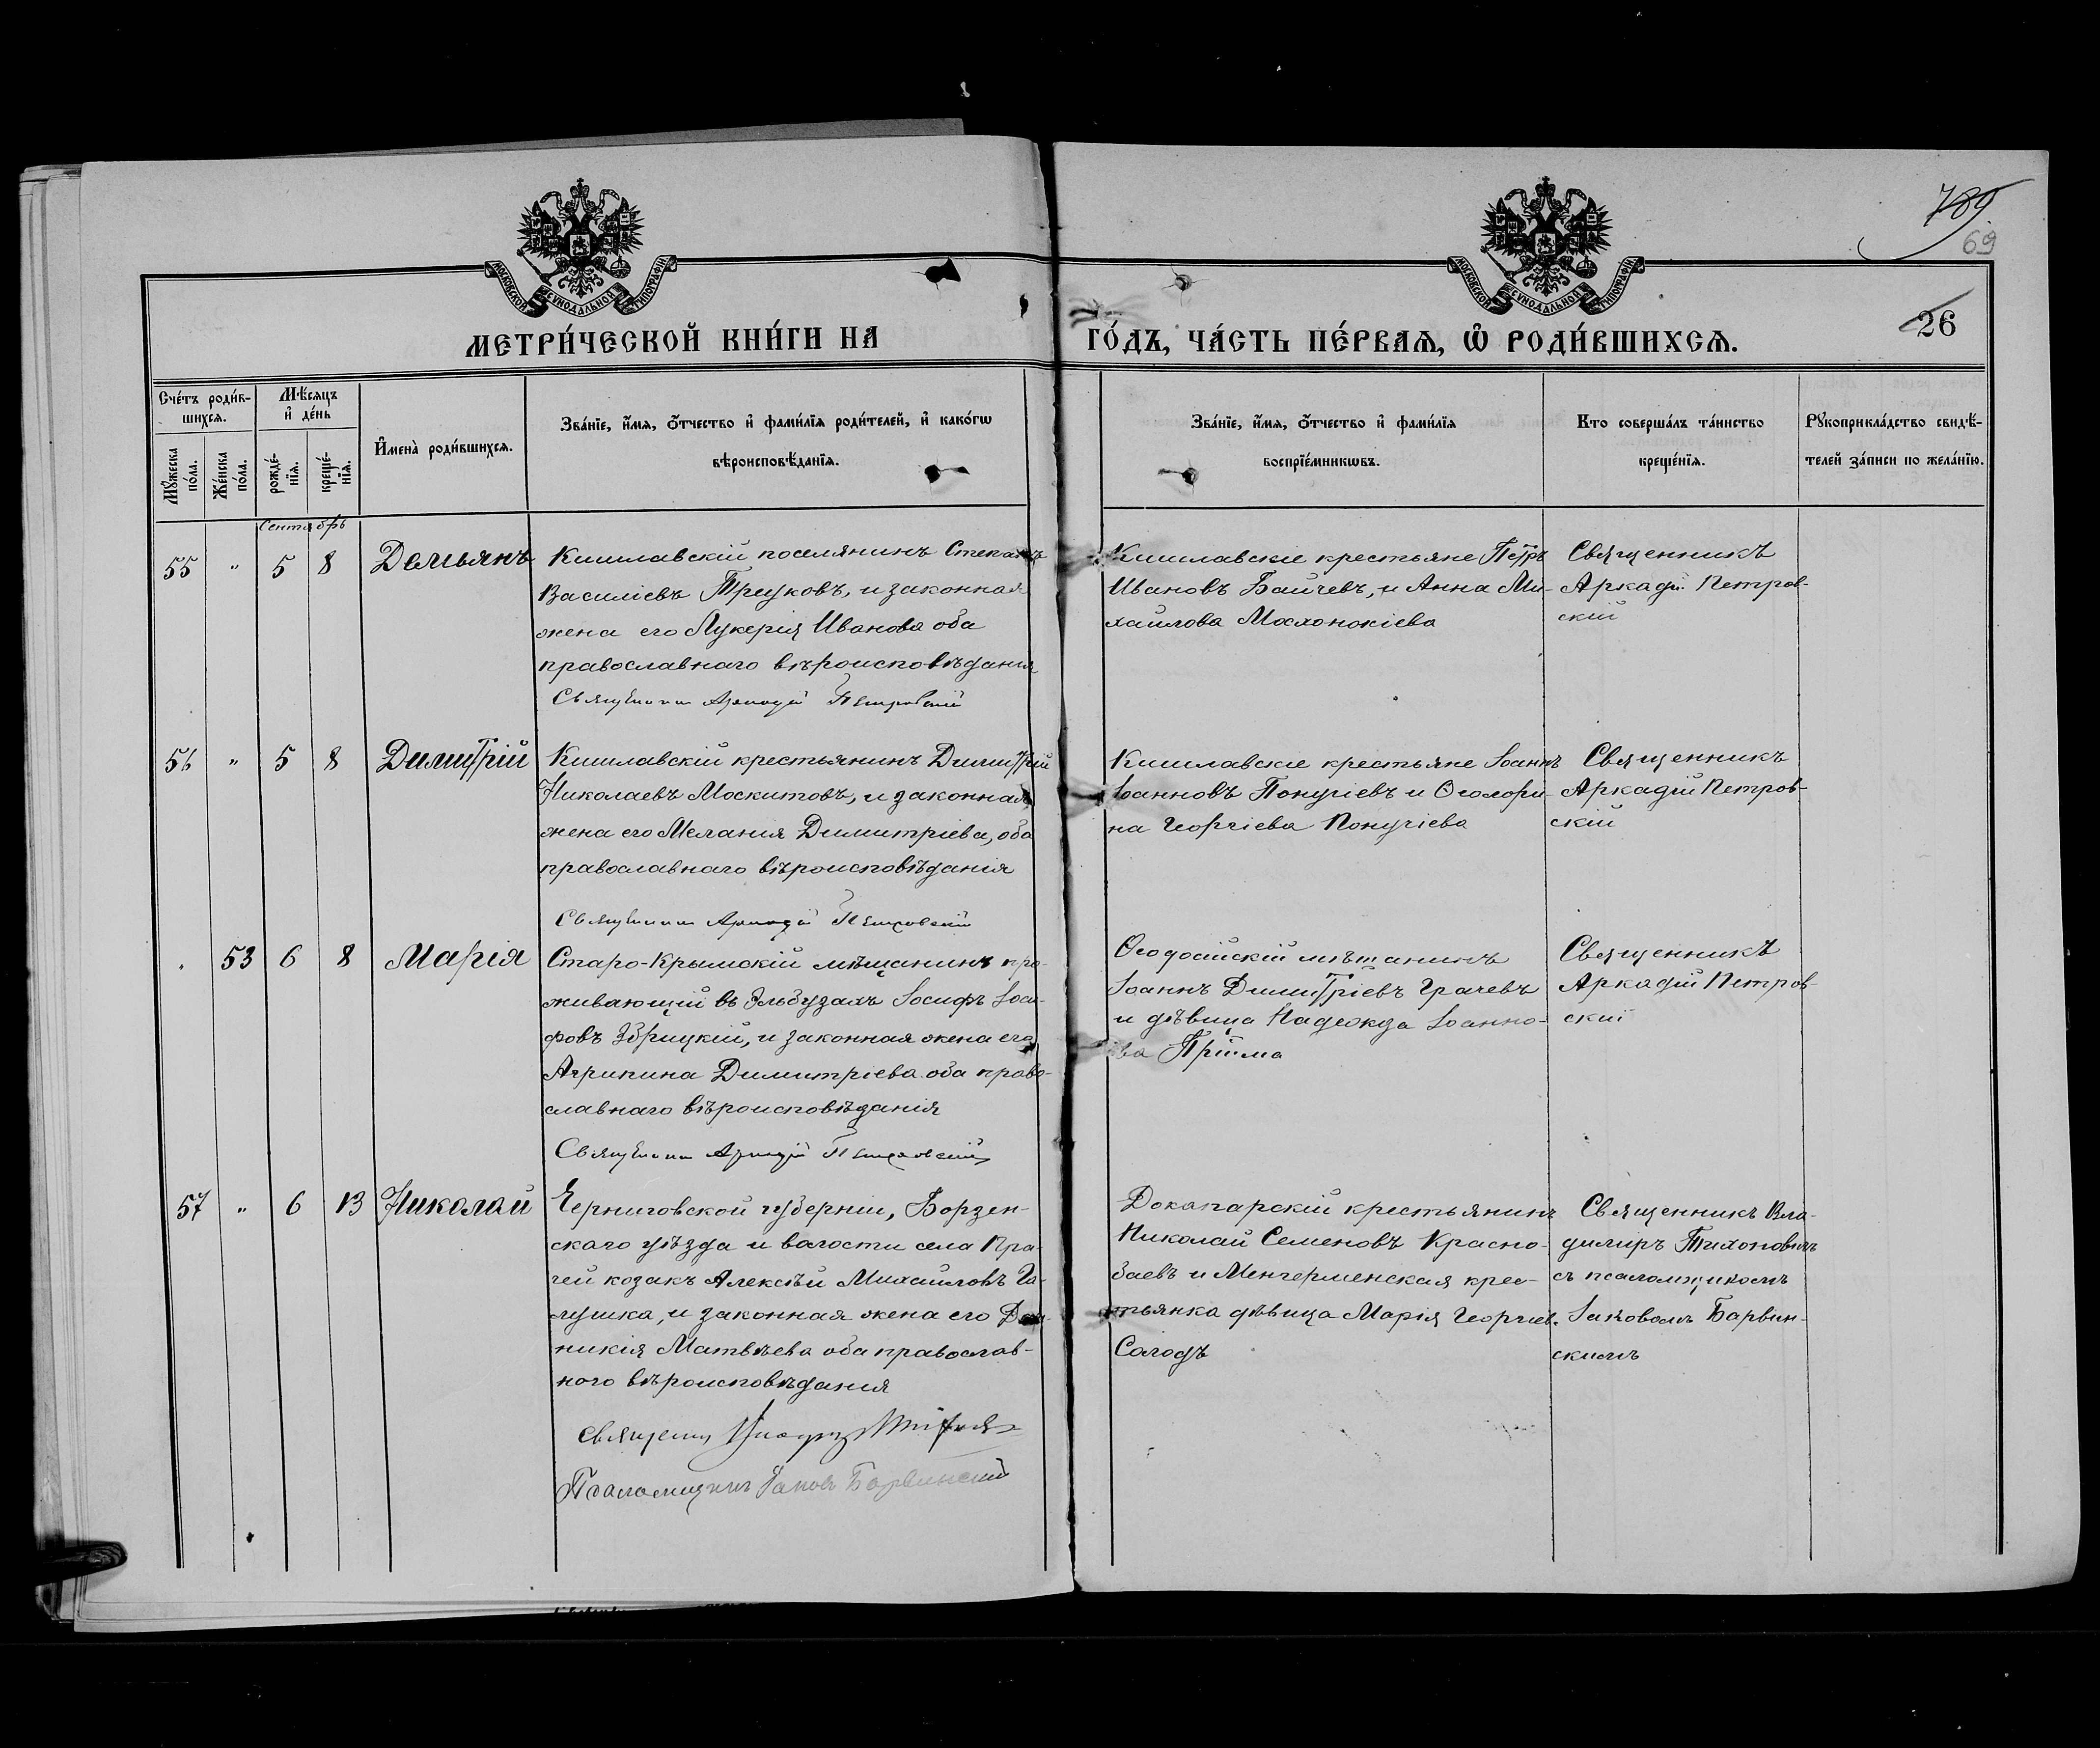 789
69
26
МОСКОВСКОЙ СѴНОДАЛЬНОЙ ТИПОГРАФІИ
МОСКОВСКОЙ СѴНОДАЛЬНОЙ ТИПОГРАФІИ
МЕТРИ́ЧЕСКОЙ КНИ́ГИ НА ГО́ДЪ, ЧА́СТЬ ПЕ́РВАѦ, Ѡ РОДИ́ВШИХСѦ.
Сче́тъ роди́в-
шихсѧ.
Мꙋ́жеска
по́ла.
Же́нска
по́ла.
Мѣ́сѧцъ
и҆ де́нь
рожде́-
нїѧ.
креще́-
нїѧ.
И҆мена̀ роди́вшихсѧ.
Зва́нїе, и҆́мѧ, ѻ҆́тчество и҆ фами́лїѧ роди́телей, и҆ како́гѡ
вѣроисповѣ́данїѧ.
Зва́нїе, и҆́мѧ, ѻ҆́тчество и҆ фами́лїѧ
воспрїе́мникѡвъ.
Кто соверша́лъ та́инство
креще́нїѧ.
Рꙋкоприкла́дство свидѣ́-
телей за́писи по жела́нїю.
Сентябрь
55 " 5 8 Демьянъ
Кишлавскій поселянинъ Степанъ
Василіевъ Трецковъ, и законная
жена его Лукерія Иванова оба
православнаго вѣроисповѣданія
Священникъ Аркадій Петровскій
Кишлавскіе крестьяне Петръ
Ивановъ Байчевъ, и Анна Ми-
хаилова
Священникъ
Аркадій Петров-
скій
56 " 5 8 Димитрій
Кишлавскій крестьянинъ Димитрій
Николаевъ Москитовъ, и законная
жена его Меланія Димитріева, оба
православнаго вѣроисповѣданія
Священникъ Аркадій Петровскій
Кишлавскіе крестьяне Іоаннъ
Іоанновъ Понугіевъ и Ѳеодори-
на Георгіева Понугіева
Священникъ
Аркадій Петров-
скій
" 53 6 8 Марія
Старо-Крымскій мѣщанинъ про-
живающій въ Эльбузлахъ Іосифъ Іоси-
фовъ Збрицкій, и законная жена его
Агрипина Димитріева оба право-
славнаго вѣроисповѣданія
Священникъ Аркадій Петровскій
Ѳеодосійскій мѣщанинъ
Іоаннъ Димитріевъ Грачевъ
и дѣвица Надежда Іоанно-
ва Пріима
Священникъ
Аркадій Петров-
скій
57 " 6 13 Николай
Черниговской губерніи, Борзен-
скаго уѣзда и волости села Пра-
чей козакъ Алексѣй Михаиловъ Га-
лушка, и законная жена его Дом-
никія Матвѣева оба православ-
ного вѣроисповѣданія
Священникъ
Псаломщикъ Іаковъ Барвинскій
Докапарскій крестьянинъ
Николай Семеновъ Красно-
заевъ и Менгерменская крес-
тьянка дѣвица Марія Георгіев.
Солодъ
Священникъ Вла-
димиръ Тихоновичъ
съ псаломщикомъ
Іаковомъ Барвин-
скимъ